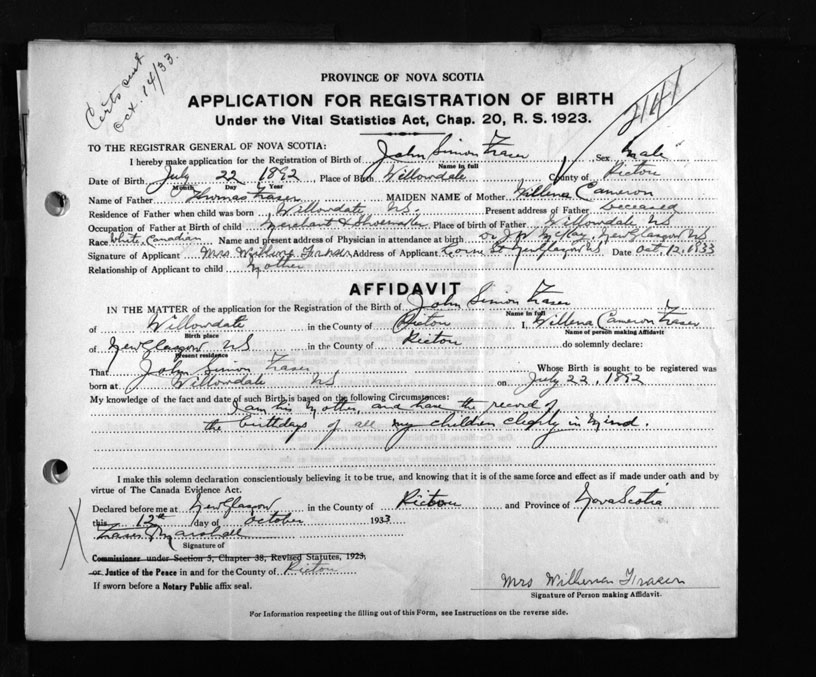 Certs sent
Oct. 14/33.
PROVINCE OF NOVA SCOTIA
2141
APPLICATION FOR REGISTRATION OF BIRTH
Under the Vital Statistics Act, Chap. 20, R. S. 1923.
TO THE REGISTRAR GENERAL OF NOVA SCOTIA:
I hereby make application for the Registration of Birth of John Simon Fraser Sex Male
Name in full
Date of Birth July 22 1892 Place of Birth Willowdale County of Pictou
Month Day Year
Name of Father Thomas Fraser MAIDEN NAME of Mother Willena Cameron
Residence of Father when child was born Willowdale NS Present address of Father Deceased
Occupation of Father at Birth of child Merchant & Shoemaker Place of birth of Father Willowdale NS
Race White Canadian Name and present address of Physician in attendance at birth Dr J W McKay, New Glasgow NS
Signature of Applicant Mrs Fraser Address of Applicant St New Glasgow N.S. Date Oct. 12. 1933
Relationship of Applicant to child Mother
AFFIDAVIT
IN THE MATTER of the application for the Registration of the Birth of John Simon Fraser
Name in full
of Willowdale in the County of Pictou I, Willena Cameron Fraser
Birth place Name of person making Affidavit
of New Glasgow NS in the County of Pictou do solemnly declare:
Present residence
That John Simon Fraser Whose Birth is sought to be registered was
born at Willowdale NS on July 22, 1892
My knowledge of the fact and date of such Birth is based on the following Circumstances:
I am his Mother, and have the record of
the birthdays of all my children clearly in mind.
I make this solemn declaration conscientiously believing it to be true, and knowing that it is of the same force and effect as if made under oath and by
virtue of The Canada Evidence Act.
Declared before me at New Glasgow in the County of Pictou and Province of Nova Scotia
this 12th day of October 1933
Fraser Marshall
Signature of
Commissioner under Section 5, Chapter 38, Revised Statutes, 1923,
or Justice of the Peace in and for the County of Pictou
If sworn before a Notary Public affix seal.
Mrs Fraser
Signature of Person making Affidavit.
For Information respecting the filling out of this Form, see Instructions on the reverse side.